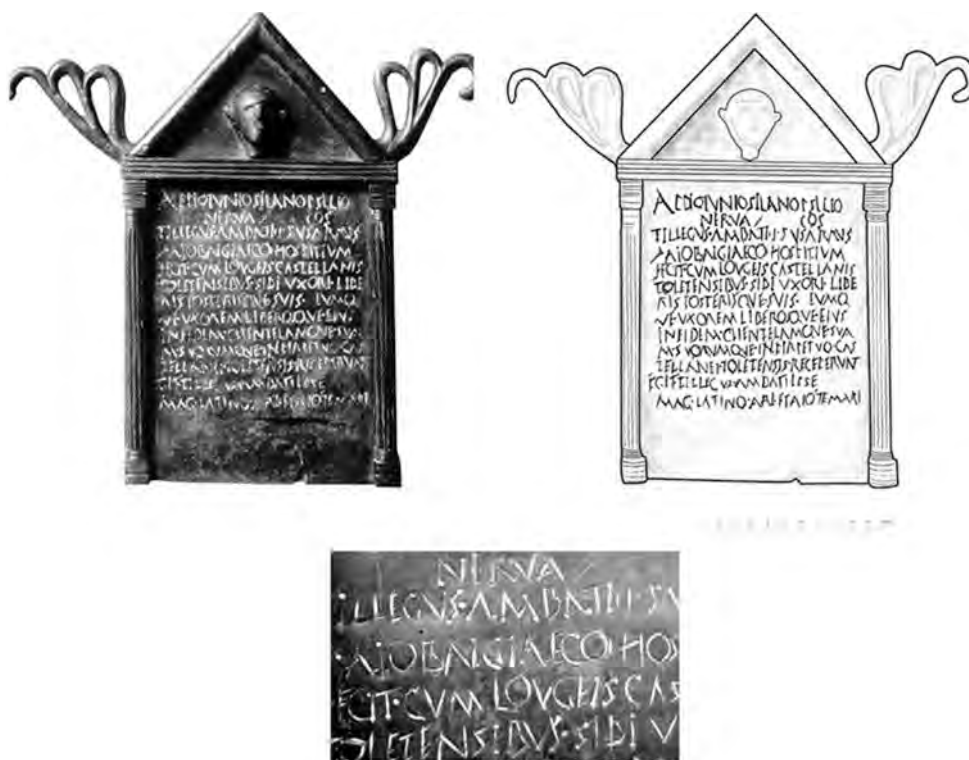 APPIO IVNIO SILANO P SILIO
NERVA COS
TILLEGVS·AMBATI·F·SVSARRVS
Ↄ AIOBRIGIAECO HOSPITIVM
FECIT·CVM LOVGEIS CASTELLANIS
TOLETENSIBVS·SIBI VXORI LIBE
RIS POSTERISQVE SVIS· EVMQ
VE VXOREM LIBEROSQVE EIVS
IN FIDEM CLIENTELAMQVE SVA
M SVORVMQVE IN PERPETVO CAS
TELLANEI TOLETENSES RECEPERVNT
EGIT TILLEGVS AMBATI IPSE
MAG·LATINO· ARI
APPIO IVNIO SILANO P SILIO
NERVA COS
TILLEGVS·AMBATI·F·SVSARRVS
Ↄ AIOBRIGIAECO HOSPITIVM
FECIT·CVM LOVGEIS CASTELLANIS
TOLETENSIBVS·SIBI VXORI LIBE
RIS POSTERISQVE SVIS· EVMQ
VE VXOREM LIBEROSQVE EIVS
IN FIDEM CLIENTELAMQVE SVA
M SVORVMQVE IN PERPETVO CAS
TELLANEI TOLETENSES RECEPERVNT
EGIT TILLEGVS AMBATI IPSE
MAG·LATINO·ARI F ET AIO TEMARI
NERVA
TILLEGVS·AMBATI·F·SV
Ↄ AIOBRIGIAECO HOS
FECIT·CVM LOVGEIS CAS
TOLETENSIBVS·SIBI V